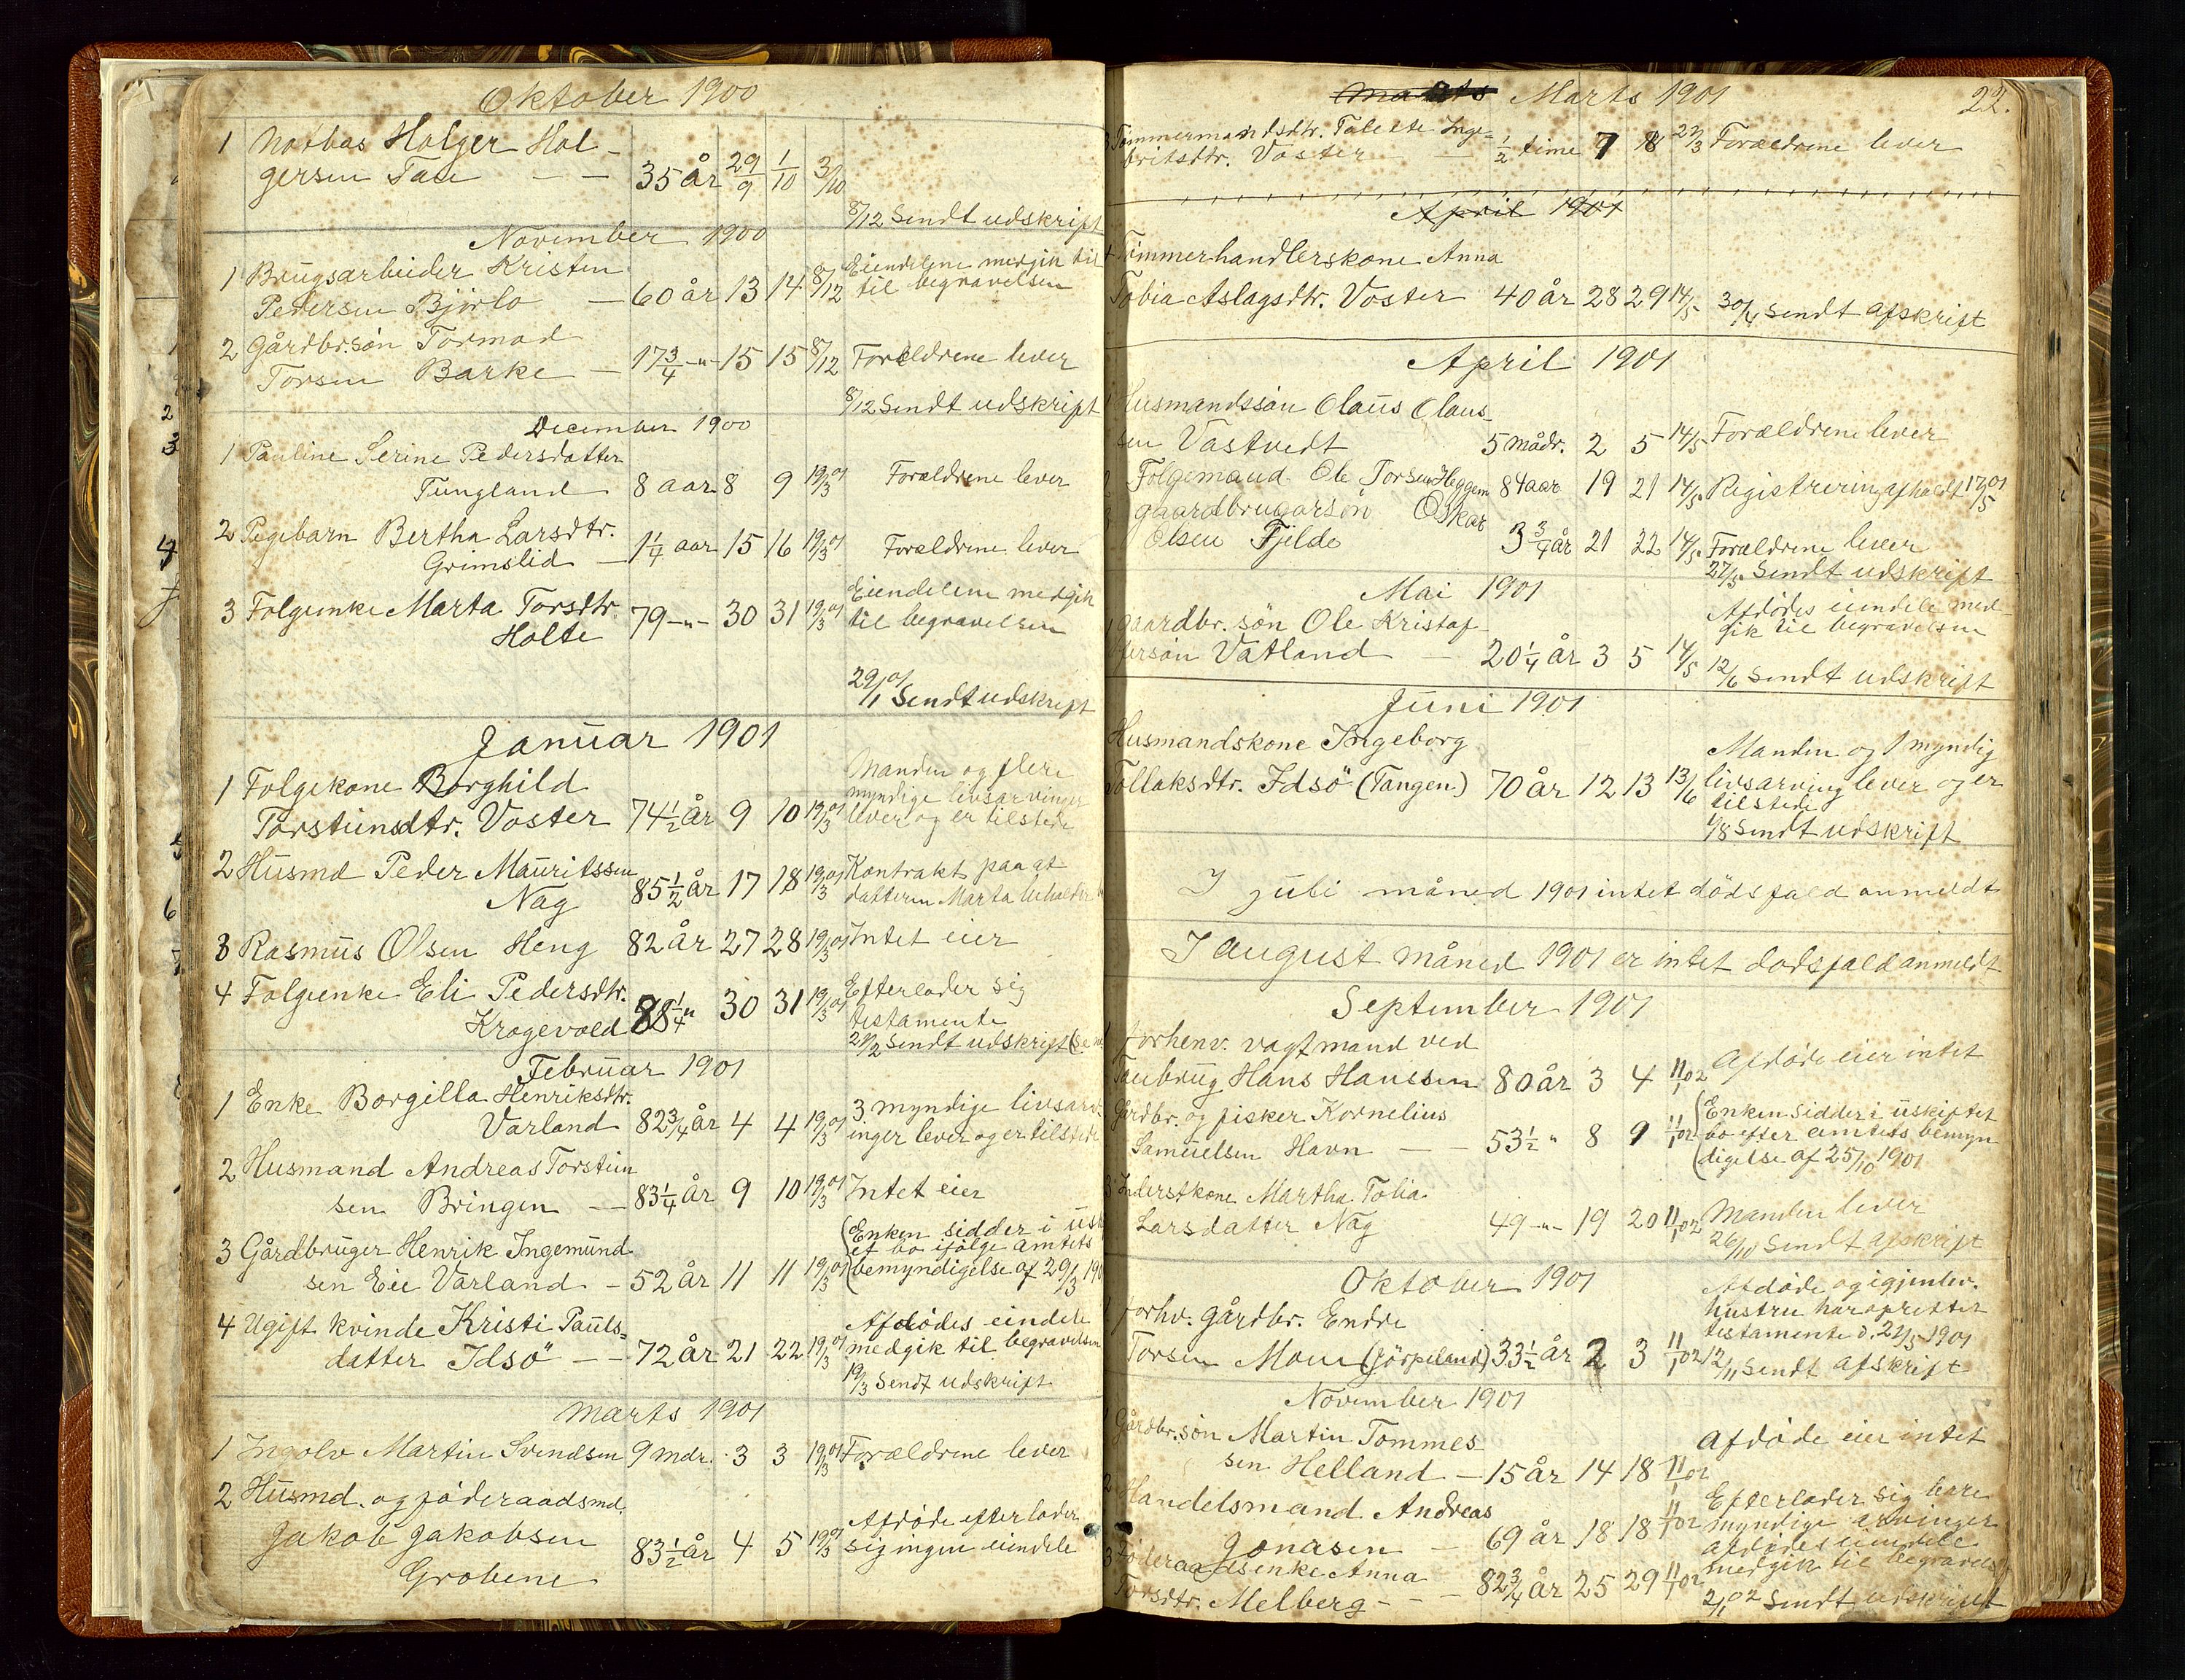 Oktober 1900
1 Mathas Holger Hol-
gersen Tau — — 35 år 29/9 1/10 3/10
8/12 Sendt udskrift
November 1900
1 Brugsarbeider Kristen Eiendelene medgik til
Pedersen Björlo — 60 år 13 14 8/12 til begravelsen
2 Gårdbr.søn Tormod
Torsen Barke — 17 3/4 -"- 15 15 8/12 Forældrene lever
8/12 Sendt udskrift
December 1900
1 Pauline Serine Pedersdatter
Tungland 8 aar 8 9 19/3 01 Forældrene lever
2 Pigebarn Bertha Larsdtr.
Grimslid — 1 1/4 aar 15 16 19/3 01 Forældrene lever
3 Folgeenke Marta Torsdtr. 79 -"- 30 31 19/3 01 Eiendelene medgik
Holte til begravelsen
29/1 01 Sendt udskrift
Januar 1901
1 Folgekone Borghild Manden og flere
myndige livsarvinger
Torsteinsdtr. Voster 74 1/2 år 9 10 19/3 01 lever og er tilstede
2 Husmd Peder Mauritssen 85 1/2 år 17 18 19/3 01 Kontrakt paa at
Nag datteren Marta beholder
3 Rasmus Olsen Heng 82 år 27 28 19/3 01 Intet eier
4 Folgeenke Eli Pedersdtr. Efterlader sig
Kragevold 88 1/4 " 30 31 19/3 01 testamente
21/2 Sendt udskrift
Februar 1901
1 Enke Borgilla Henriksdtr. 3 myndige livsarv-
Varland 82 3/4 år 4 4 19/3 01 inger lever og er tilstede
2 Husmand Andreas Torstein
sen Bringen — 83 1/4 år 9 10 19/3 01 Intet eier
3 Gårdbruger Henrik Ingemund (Enken sidder i usk
et bo ifølge amtets
sen Eie Varland — 52 år 11 11 19/3 01 bemyndigelse af 29/3 190
4 Ugift kvinde Kristi Pauls= Afdødes eiendele
datter Idsö — — 72 år 21 22 19/3 01 medgik til begravelsen
19/3 Sendt udskrift
Marts 1901
1 Ingolv Martin Svendsen 9 mdr. 3 3 19/3 01 Forældrene lever
2 Husmd. og føderaadsmd.
Jakob Jakobsen 83 1/2 år 4 5 19/3 01 Afdøde efterlader
Grobene sig ingen eiendele
22.
Marts 1901
3 Tømmermandsdtr. Talette Inge=
britsdtr. Voster — 1/2 time 7 18 27/3 Forældrene lever
April 1901
4 Tømmerhandlerskone Anna
Tobia Aslagsdtr. Voster 40 år 28 29 14/5 30/4 Sendt afskrift
April 1901
1 Husmandssøn Olaus Olaus
sen Vastvedt 5 mådr. 2 5 14/5 Forældrene lever
2 Folgemand Ole Torsen Heggem 84 aar 19 21 14/5 Registrering afholdt 17/5 01
3 gaardbrugersøn Oskar
Olsen Fjelde 3 3/4 år 21 22 14/5 Forældrene lever
27/5 Sendt udskrift
Mai 1901
1 gaardbr. søn Ole Kristof Afdødes eiendele med-
gik til begravelsen
fersøn Vatland — 20 1/4 år 3 5 14/5 12/6 Sendt udskrift
Juni 1901
Husmandskone Ingeborg Manden og 1 myndig
Tollaksdtr. Idsö (Tangen) 70 år 12 13 13/6 livsarving lever og er
tilstede
1/8 Sendt udskrift
I juli måned 1901 intet dödsfald anmeldt
I august måned 1901 er intet dødsfald anmeldt
September 1901
1 forhenv. vagtmand ved
Taubrug Hans Hanssen 80 år 3 4 11/1 02 Afdøde eier intet
Gårdbr. og fisker Kornelius (Enken sidder i uskiftet
Samuelsen Havn — — 53 1/2 " 8 9 11/1 02 bo efter amtets bemyn
digelse af 25/10 1901
3 Inderstkone Martha Tobia
Larsdatter Nag 49 -"- 19 20 11/1 02 Manden lever
26/10 Sendt afskrift
Oktober 1901
1 forhv. gårdbr. Endre Afdøde og igjenlev.
hustru har oprettet
testamente d. 21/5 1901
Torsen Moen (Jörpeland) 33 1/2 år 2 3 11/1 02 12/11 Sendt afskrift
November 1901
1 Gårdbr.søn Martin Tommes Afdøde eier intet
sen Helland — 15 år 14 18 11/1 02
2 Handelsmand Andreas Efterlader sig bare
Jonasen — 69 år 18 18 11/1 02 myndige arvinger
3 Føderaadsenke Anna afdødes eiendele
medgik til begravelse
Torsdtr. Melberg — — 82 3/4 år 25 29 11/1 02 2/1 02 Sendt udskrift